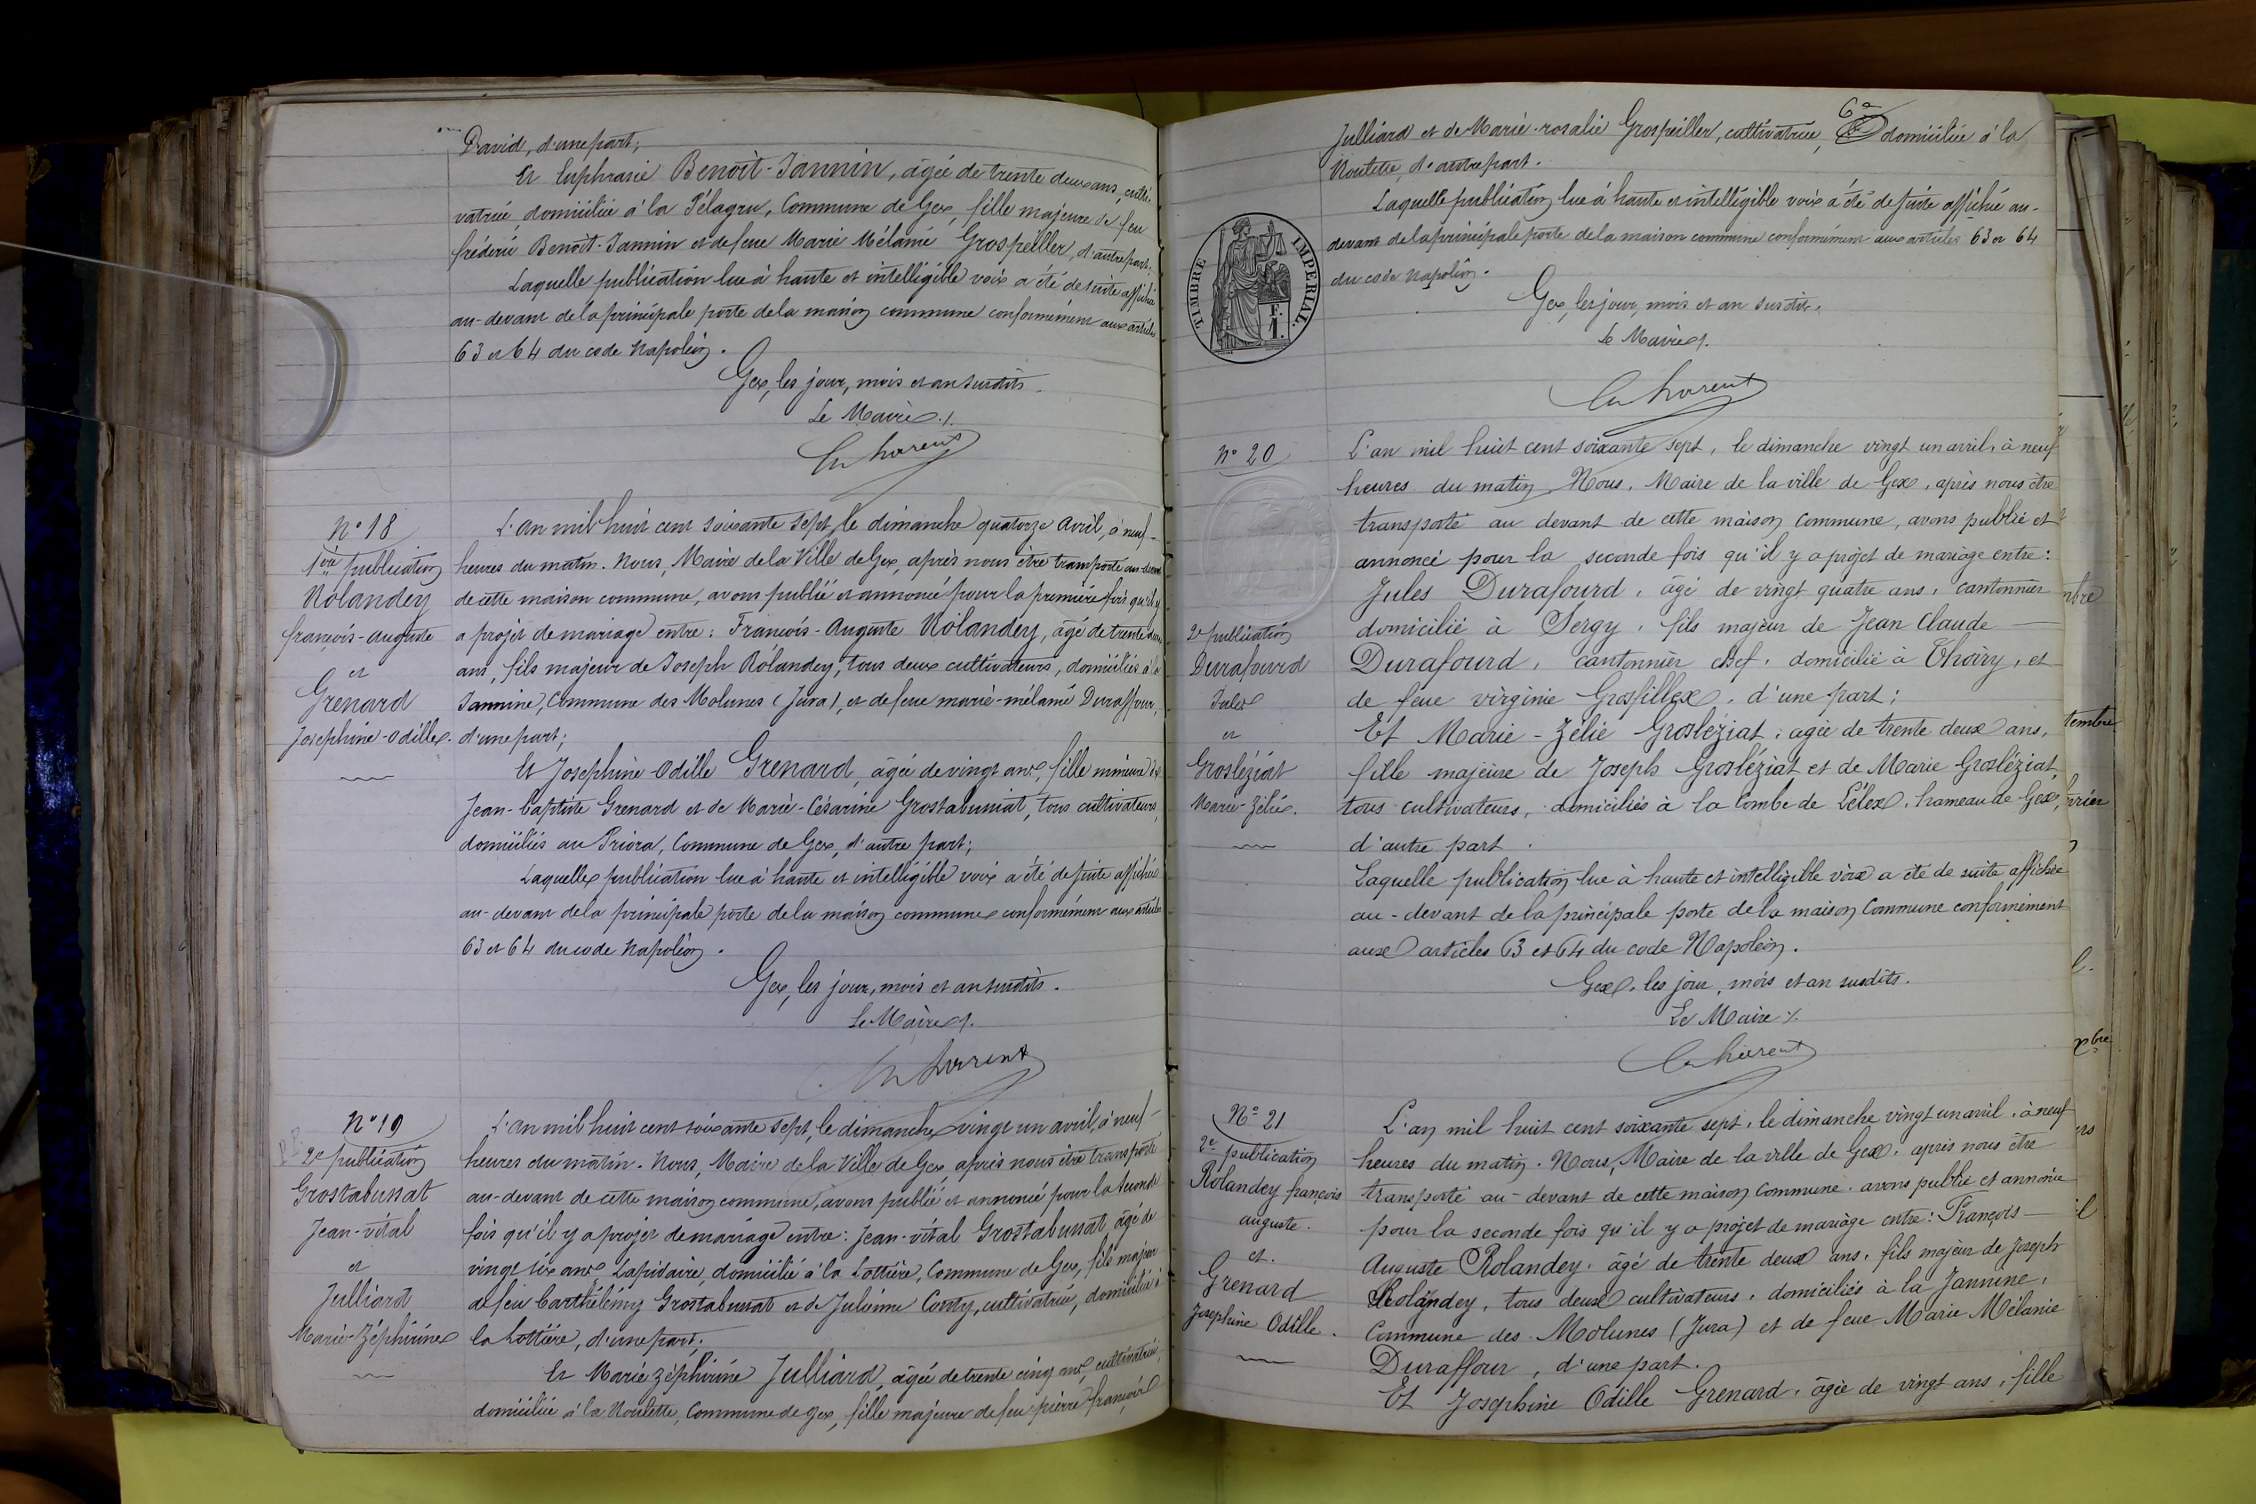 David, d'une part;
Et Euphrasie Benoît-Jannin, âgée de trente deux ans, culti-
vatrice, domiciliée à la Pélagru, Commune de Gex, fille majeure de feu
frédéric Benoît-Jannin et de feue Marie Mélanie Grospeiller, d'autre part;
Laquelle publication lue à haute et intelligible voix a été de suite affichée
au-devant de la principale porte de la maison commune conformément aux articles
63 et 64 du code Napoléon.
Gex, les jour, mois et an susdits.
Le Maire ./.
N° 18
1ère publication
Rolandey
françois-auguste
et
Grenard
Josephine-Odille.
L'an mil huit cent soixante sept, le dimanche quatorze Avril, à neuf-
heures du matin. Nous, Maire de la Ville de Gex, après nous être transporté au-devant
de cette maison commune, avons publié et annoncé pour la première fois qu'il y
a projet de mariage entre: François-Auguste Rolandey, âgé de trente deux
ans, fils majeur de Joseph Rolandey, tous deux cultivateurs, domiciliés à la
Jannine, Commune des Molunes (Jura), et de feue marie-mélanie Duraffour,
d'une part;
Et Josephine Odille Grenard, âgée de vingt ans, fille mineure de
Jean-Baptiste Grenard et de Marie-Césarine Grostabussiat, tous cultivateurs,
domiciliés au Priora, Commune de Gex, d'autre part;
Laquelle publication lue à haute et intelligible voix a été de suite affichée
au-devant de la principale porte de la maison commune conformément aux articles
63 et 64 du code Napoléon.
Gex, les jour, mois et an susdits.
Le Maire ./.
N° 19
2e publication
Grostabussat
Jean-vital
et
Julliard
Marie-Zéphirine
L'an mil huit cent soixante sept, le dimanche vingt un avril, à neuf-
heures du matin. Nous, Maire de la Ville de Gex, après nous être transporté
au-devant de cette maison commune, avons publié et annoncé pour la seconde
fois qu'il y a projet de mariage entre: Jean-vital Grostabussat, âgé de
vingt six ans, Lapidaire, domicilié à la Lottière, Commune de Gex, fils majeur
de feu Barthélémy Grostabussat et de Julienne Conty, cultivatrice, domiciliée à
la Lottière, d'une part;
Et Marie Zéphirine Julliard, âgée de trente cinq ans, cultivatrice,
domiciliée à la Roulette, Commune de Gex, fille majeure de feu pierre françois
6e
Julliard et de Marie-rosalie Grospeiller, cultivatrice, domiciliée à la
Roulette, d'autre part.
Laquelle publication lue à haute et intelligible voix a été de suite affichée au-
devant de la principale porte de la maison commune conformément aux articles 63 et 64
du code Napoléon.
TIMBRE IMPERIAL.
1 F.
Gex, les jour, mois et an susdits.
Le Maire ./.
N° 20
2e publication
Durafourd
Jules
et
Grosléziat
Marie-Zélie.
L'an mil huit cent soixante sept, le dimanche vingt un avril, à neuf
heures du matin, Nous, Maire de la ville de Gex, après nous être
transporté au devant de cette maison commune, avons publié et
annoncé pour la seconde fois qu'il y a projet de mariage entre:
Jules Durafourd, âgé de vingt quatre ans, cantonnier
domicilié à Sergy, fils majeur de Jean Claude
Durafourd, cantonnier chef, domicilié à Thoiry, et
de feue virginie Grosfillex, d'une part;
Et Marie-Zélie Grosléziat, agée de trente deux ans,
fille majeure de Joseph Grosléziat et de Marie Grosléziat,
tous cultivateurs, domiciliés à la Combe de Lélex, hameau de Gex,
d'autre part.
Laquelle publication lue à haute et intelligible voix a été de suite affichée
au-devant de la principale porte de la maison Commune conformément
aux articles 63 et 64 du code Napoléon.
Gex, les jour, mois et an susdits.
Le Maire ./.
N° 21
2e publication
Rolandey françois
auguste.
et.
Grenard
Josephine Odille.
L'an mil huit cent soixante sept, le dimanche vingt un avril, à neuf
heures du matin. Nous, Maire de la ville de Gex, après nous être
transporté au-devant de cette maison commune, avons publié et annoncé
pour la seconde fois qu'il y a projet de mariage entre: François-
Auguste Rolandey, âgé de trente deux ans, fils majeur de Joseph
Rolandey, tous deux cultivateurs, domiciliés à la Jannine,
Commune des Molunes (Jura) et de feue Marie Mélanie
Duraffour, d'une part.
Et Josephine Odille Grenard, âgée de vingt ans, fille